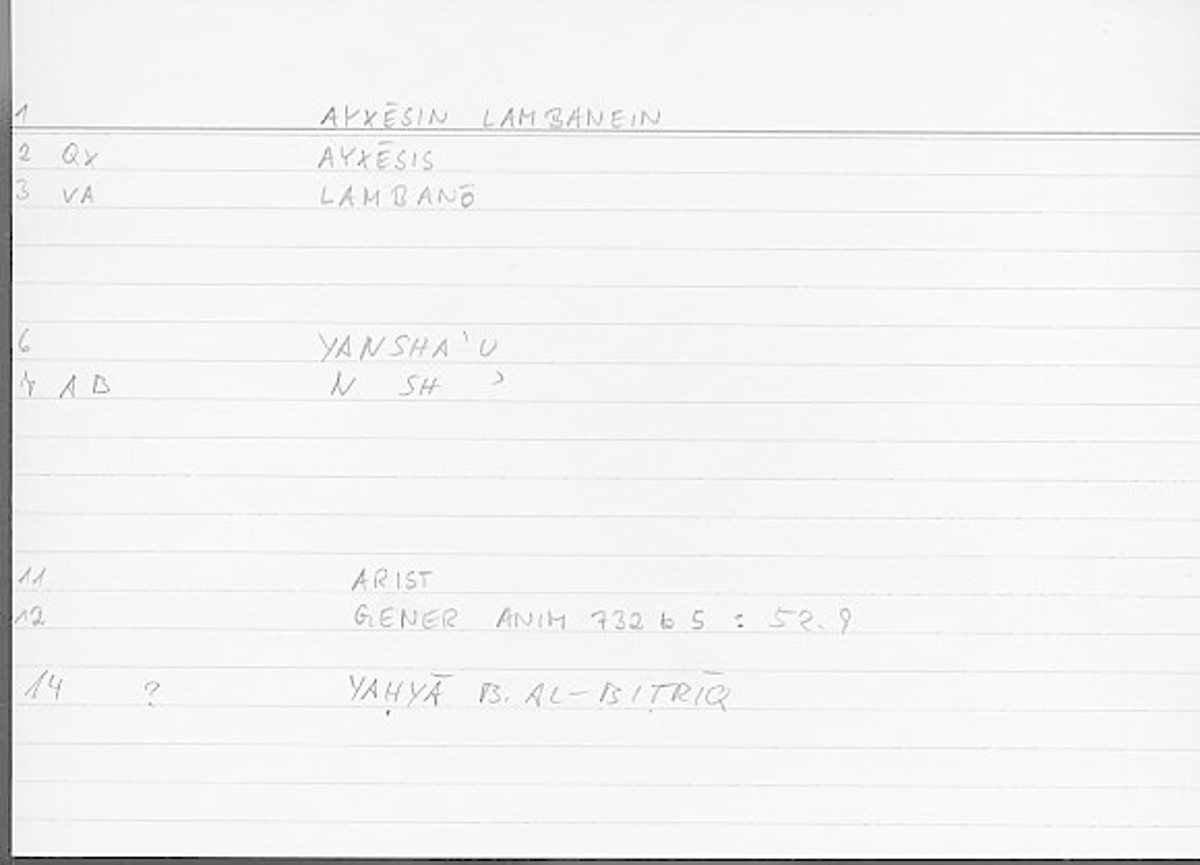 1 AYXĒSIN LAMBANEIN
2 QX AYXĒSIS
3 VA LAMBANŌ
6 YANSHA'U
7 AB N SH ʾ
11 ARIST
12 GENER ANIM 732 b 5 : 52.9
14 ? YAḤYĀ B. AL-BIṬRĪQ